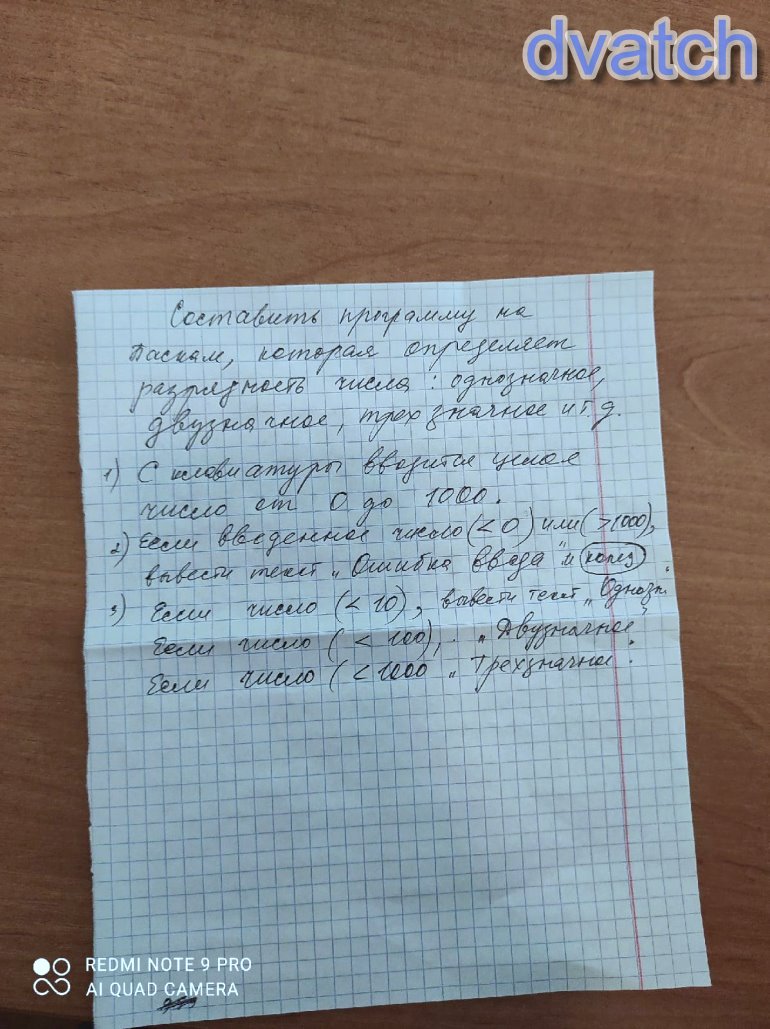 dvatch
Составить программу на
Паскал, которая определяет
разрядность числа: однозначное,
двузначное, трехзначное и т.д.
1) С клавиатуры вводится целое
число от 0 до 1000.
2) Если введенное число (< 0) или (> 1000),
вывести текст „Ошибка ввода" и конец.
3) Если число (< 10), вывести текст „Однозн.
Если число (< 100), „Двузначное"
Если число (< 1000 „Трехзначное.
REDMI NOTE 9 PRO
AI QUAD CAMERA